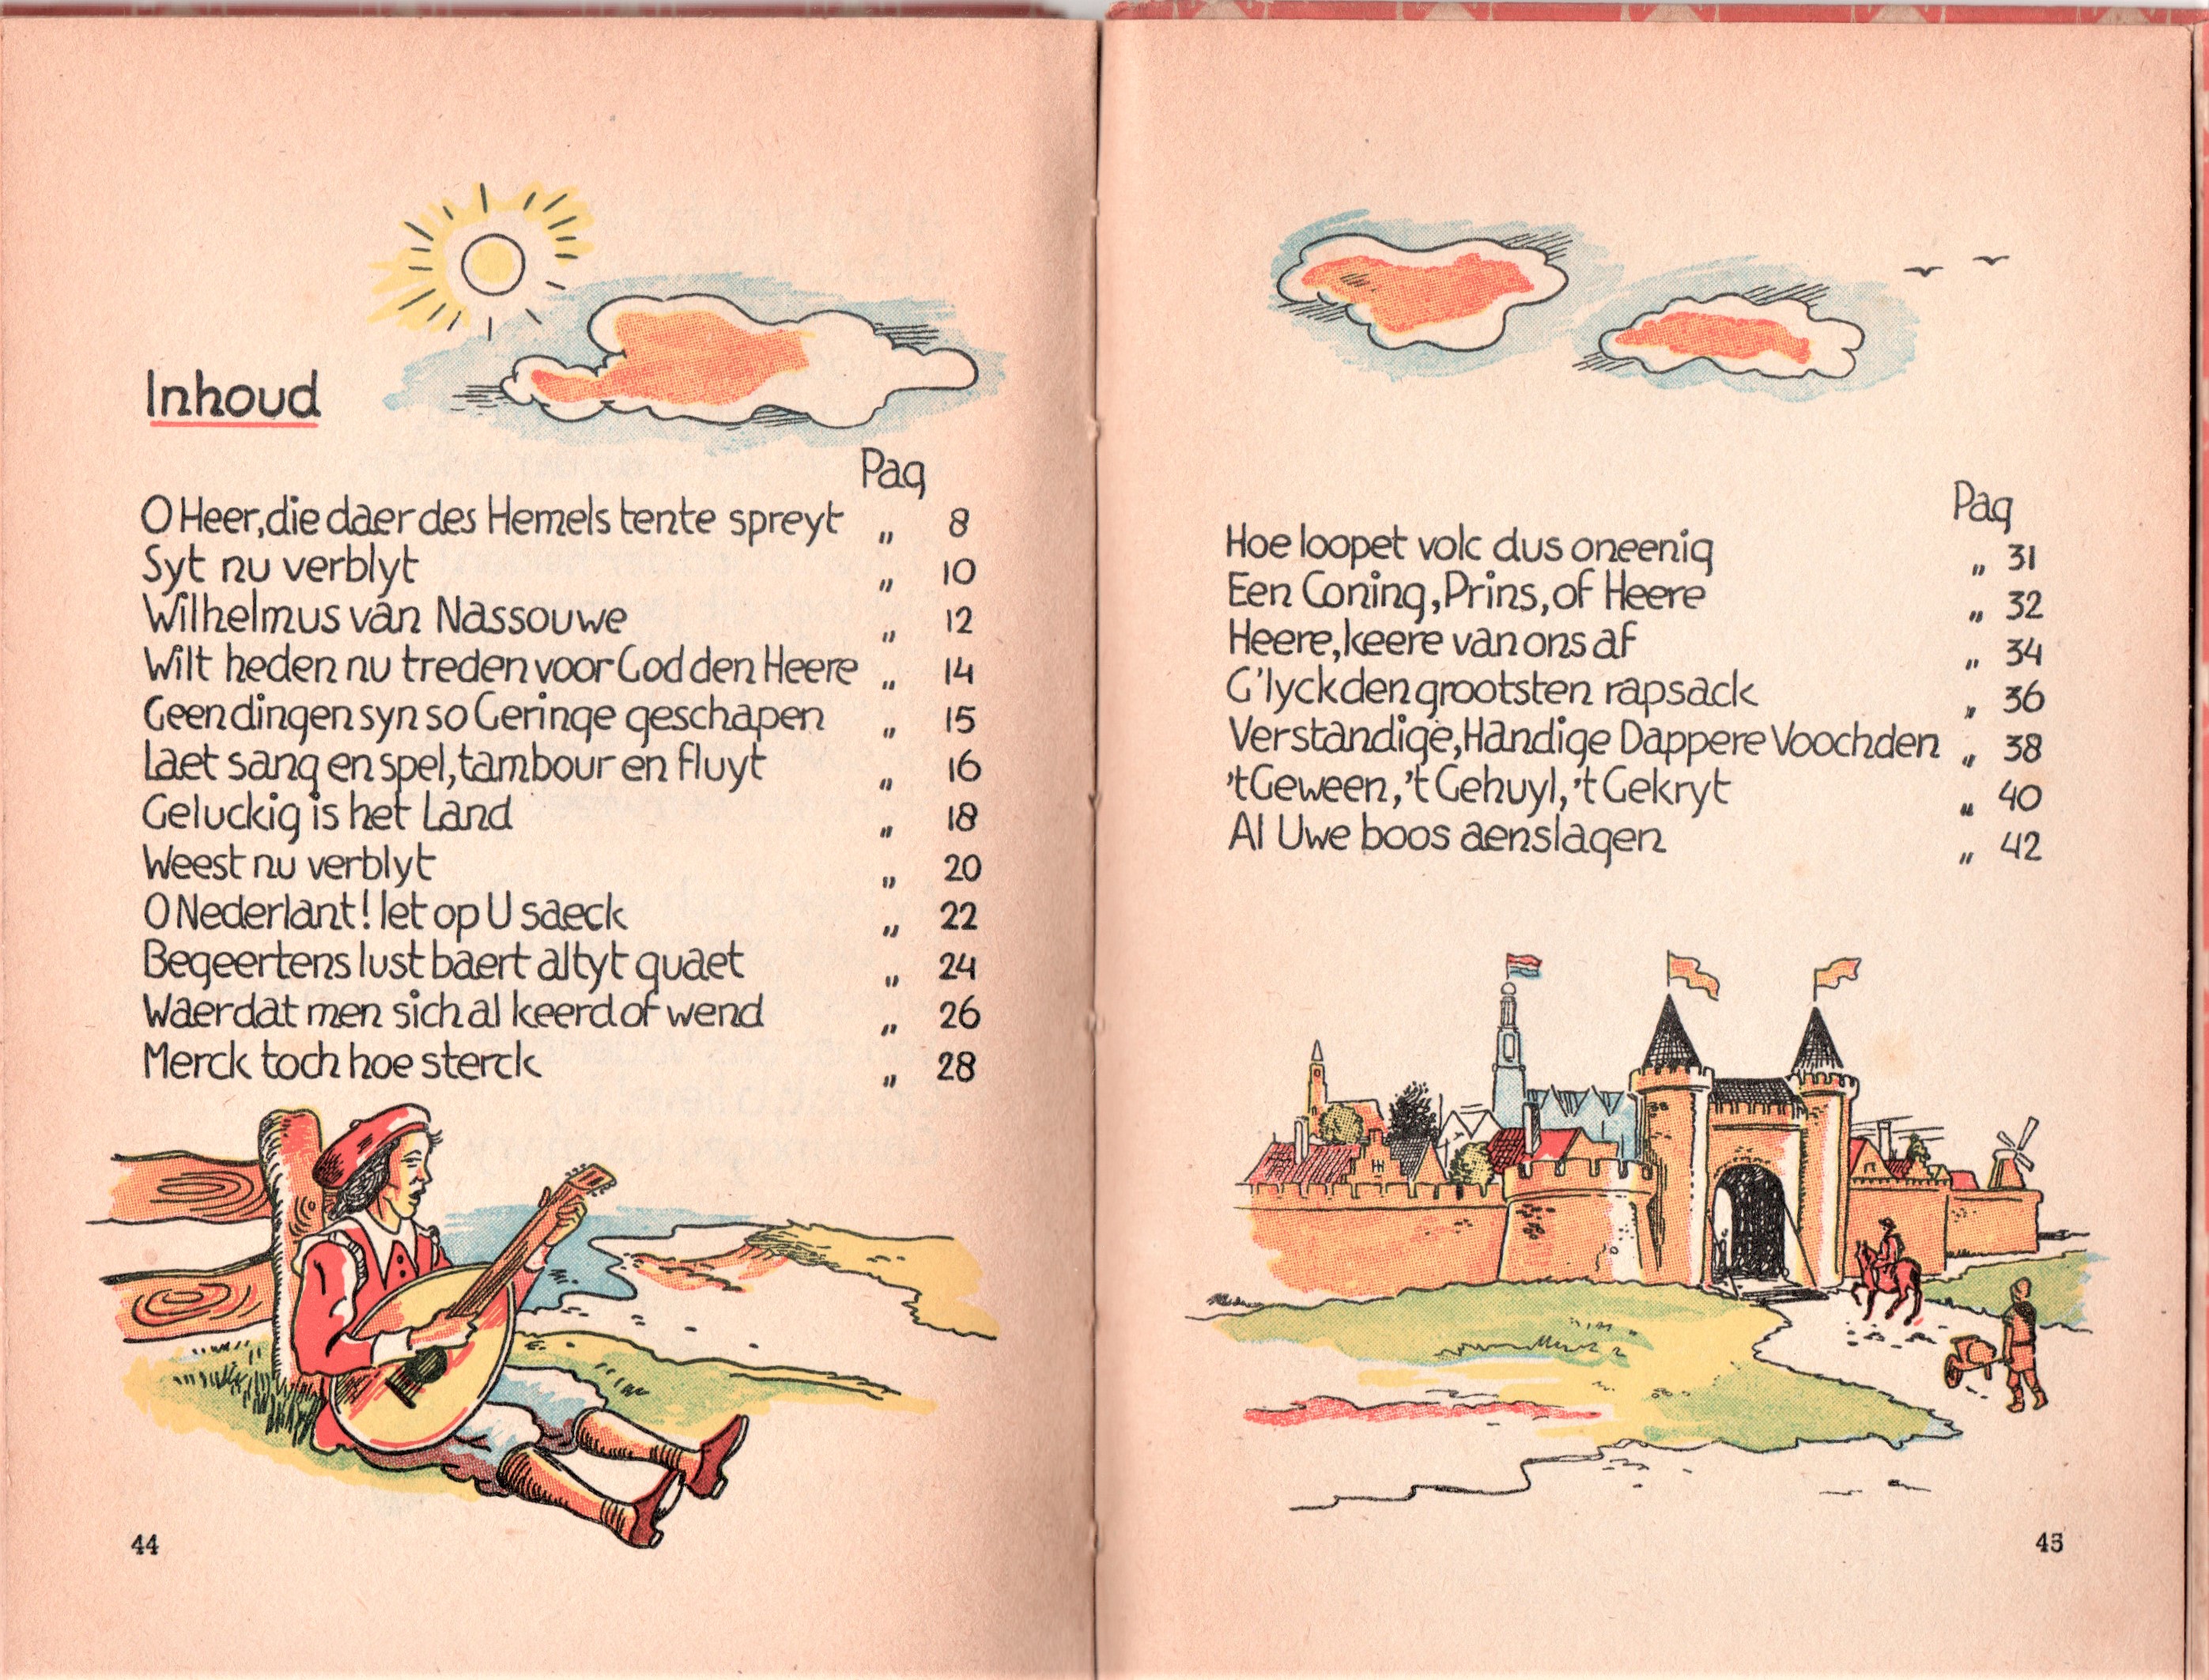 Inhoud
Pag
O Heer, die daer des Hemels tente spreyt „ 8
Syt nu verblyt „ 10
Wilhelmus van Nassouwe „ 12
Wilt heden nu treden voor God den Heere „ 14
Geen dingen syn so Geringe geschapen „ 15
Laet sang en spel, tambour en fluyt „ 16
Geluckig is het Land „ 18
Weest nu verblyt „ 20
O Nederlant! let op U saeck „ 22
Begeertens lust baert altyt quaet „ 24
Waer dat men sich al keerd of wend „ 26
Merck toch hoe sterck „ 28
44
Pag
Hoe loopet volc dus oneenig „ 31
Een Coning, Prins, of Heere „ 32
Heere, keere van ons af „ 34
G'lyck den grootsten rapsack „ 36
Verstandige, Handige Dappere Voochden „ 38
't Geween, 't Gehuyl, 't Gekryt „ 40
Al Uwe boos aenslagen „ 42
45